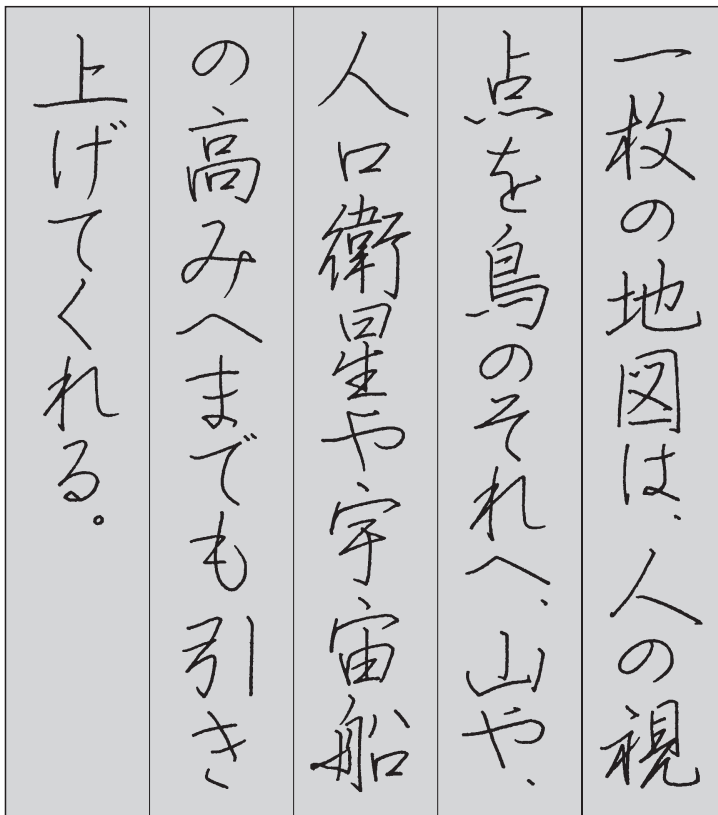 一枚の地図は、人の視
点を鳥のそれへ、山や、
人口衛星や宇宙船
の高みへまでも引き
上げてくれる。